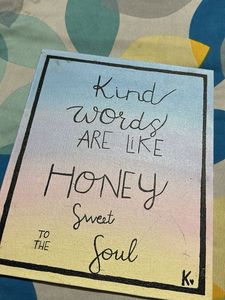 Kind
words
ARE LIKE
HONEY
Sweet
TO THE
Soul
K♥